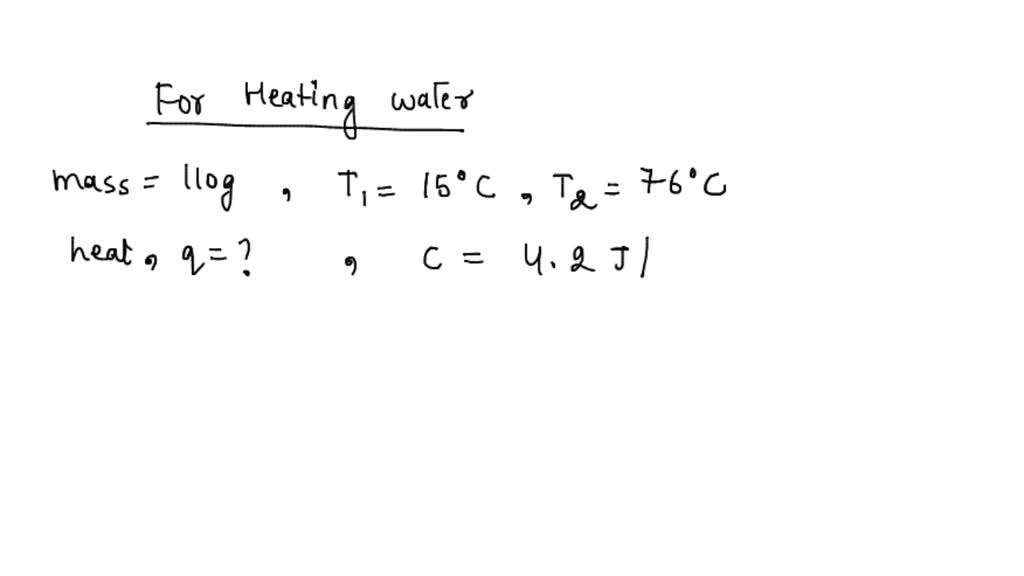 For Heating water
mass = 110g , T₁ = 15°C , T₂ = 76°C
heat, q = ? , C = 4.2 J/